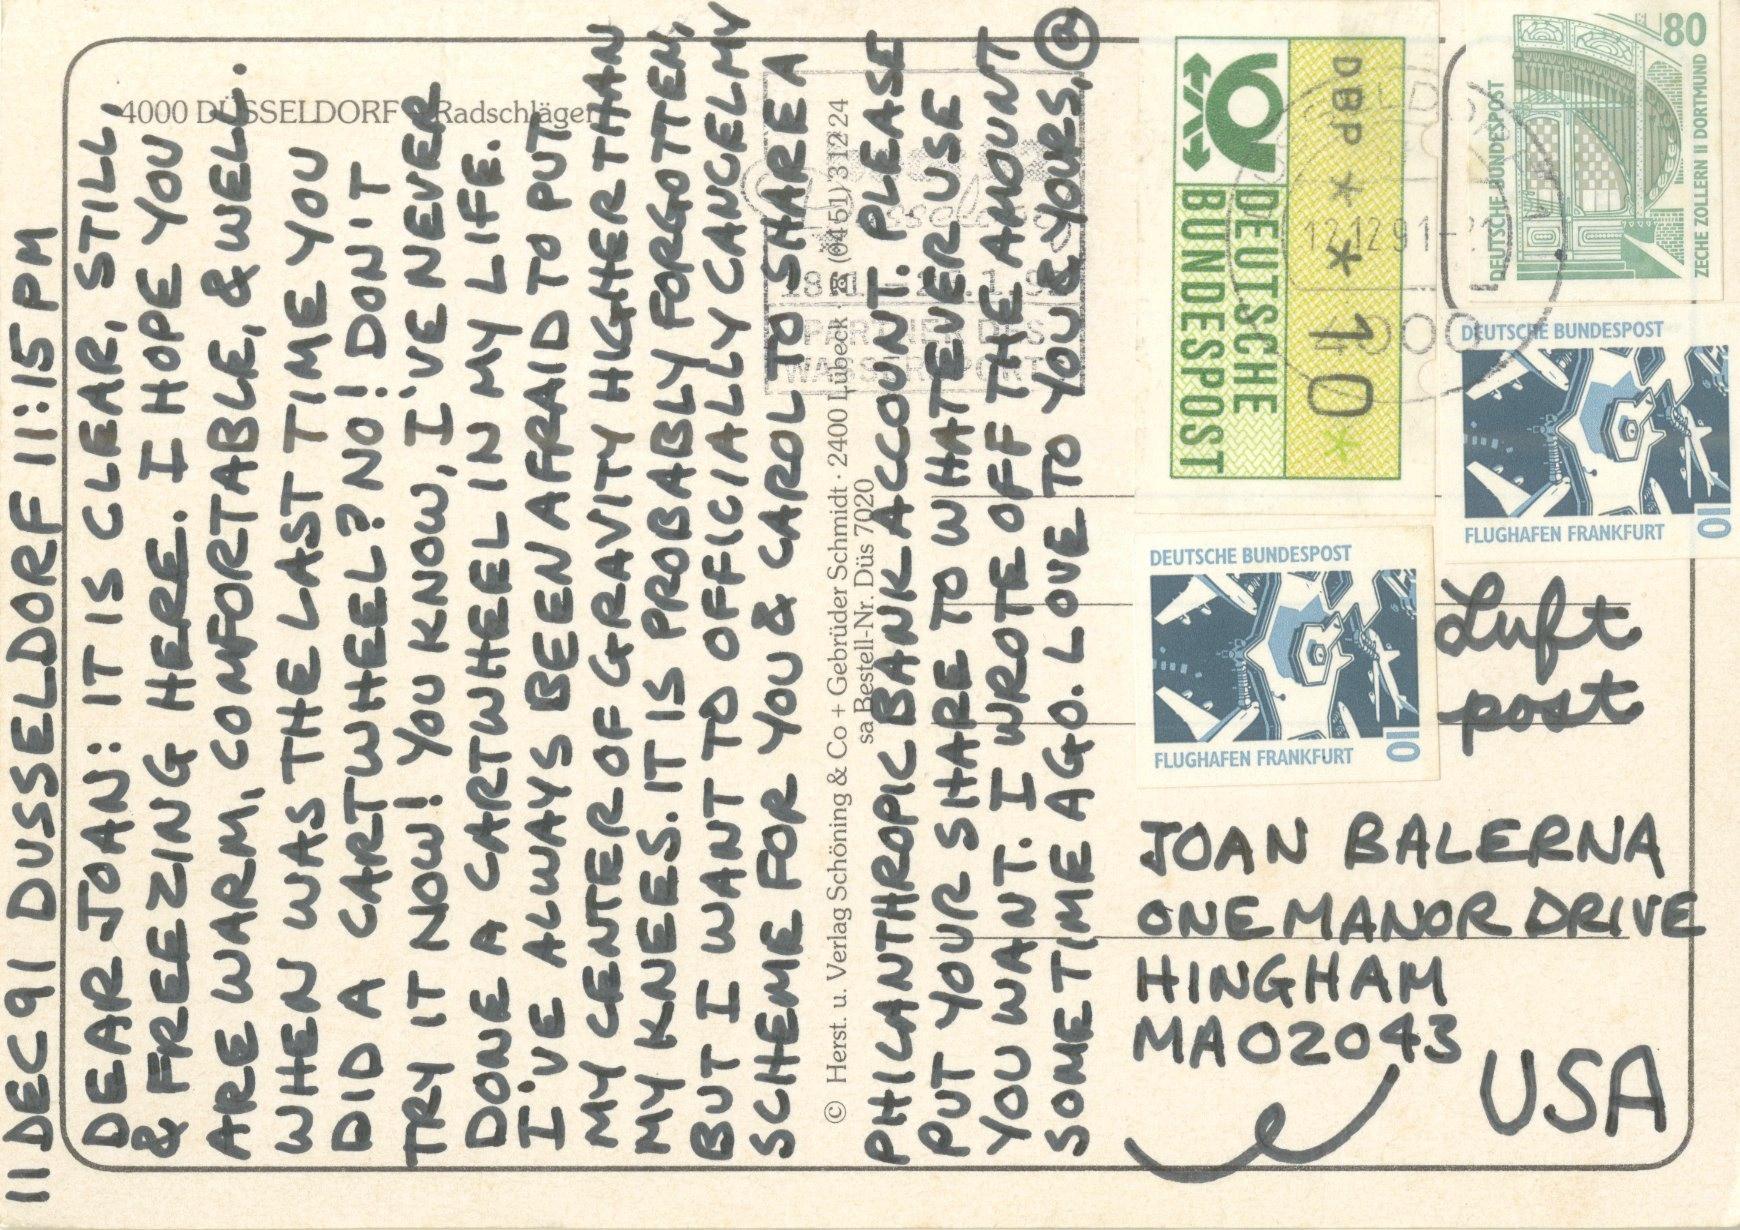 11 DEC 91 DUSSELDORF 11:15 PM
DEAR JOAN: IT IS CLEAR, STILL,
& FREEZING HERE. I HOPE YOU
ARE WARM, COMFORTABLE, & WELL.
WHEN WAS THE LAST TIME YOU
DID A CARTWHEEL? NO! DON'T
TRY IT NOW! YOU KNOW, I'VE NEVER
DONE A CARTWHEEL IN MY LIFE.
I'VE ALWAYS BEEN AFRAID TO PUT
MY CENTER OF GRAVITY HIGHER THAN
MY KNEES. IT IS PROBABLY FORGOTTEN,
BUT I WANT TO OFFICIALLY CANCEL MY
SCHEME FOR YOU & CAROL TO SHARE A
PHILANTHROPIC BANK ACCOUNT. PLEASE
PUT YOUR SHARE TO WHATEVER USE
YOU WANT. I WROTE OFF THE AMOUNT
SOME TIME AGO. LOVE TO YOU & YOURS,
4000 DÜSSELDORF Radschläger
© Herst. u. Verlag Schöning & Co + Gebrüder Schmidt · 2400 Lübeck · ☎ (0451) 31224
sa Bestell-Nr. Düs 7020
PARTNER DES
WASSERSPORT
DEUTSCHE
BUNDESPOST
DBP ** 10*
12.12.91-21
4000
80
DEUTSCHE BUNDESPOST
ZECHE ZOLLERN II DORTMUND
DEUTSCHE BUNDESPOST
FLUGHAFEN FRANKFURT
10
DEUTSCHE BUNDESPOST
FLUGHAFEN FRANKFURT
10
Luft
post
JOAN BALERNA
ONE MANOR DRIVE
HINGHAM
MA 02043
USA